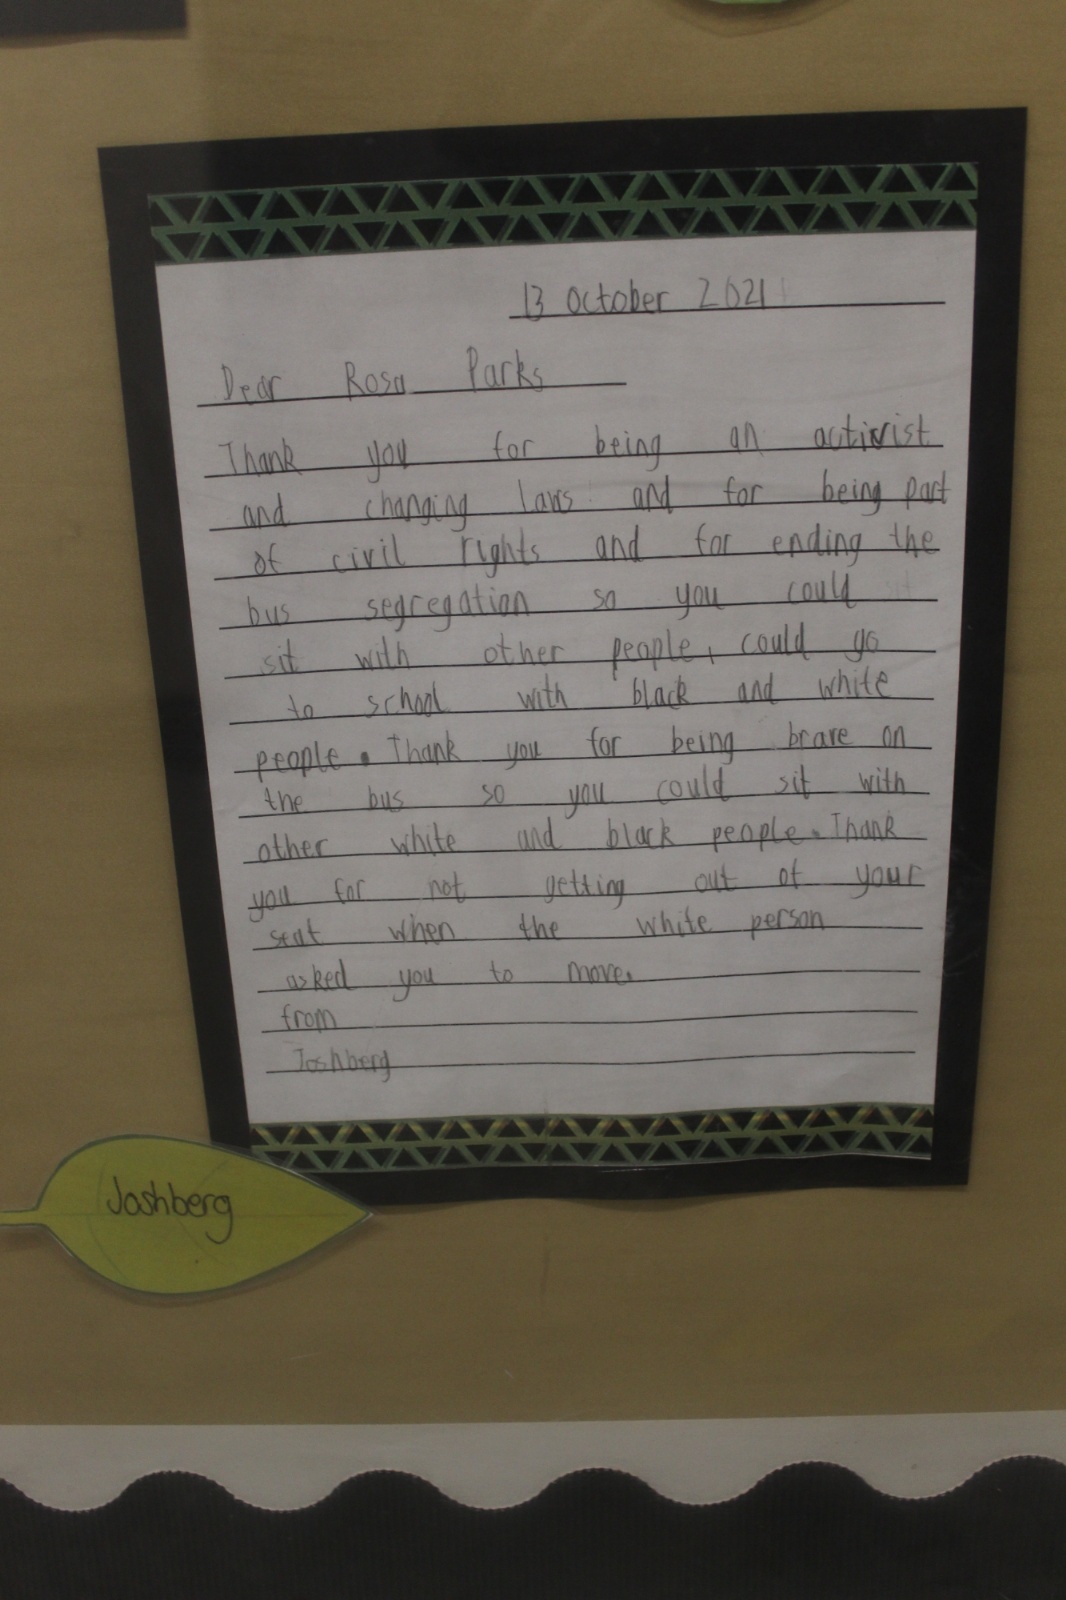 13 October 2021
Dear Rosa Parks
Thank you for being an activist
and changing laws and for being part
of civil rights and for ending the
bus segregation so you could
sit with other people, could go
to school with black and white
people. Thank you for being brave on
the bus so you could sit with
other white and black people. Thank
you for not getting out of your
seat when the white person
asked you to move.
from
Joshberg
Joshberg